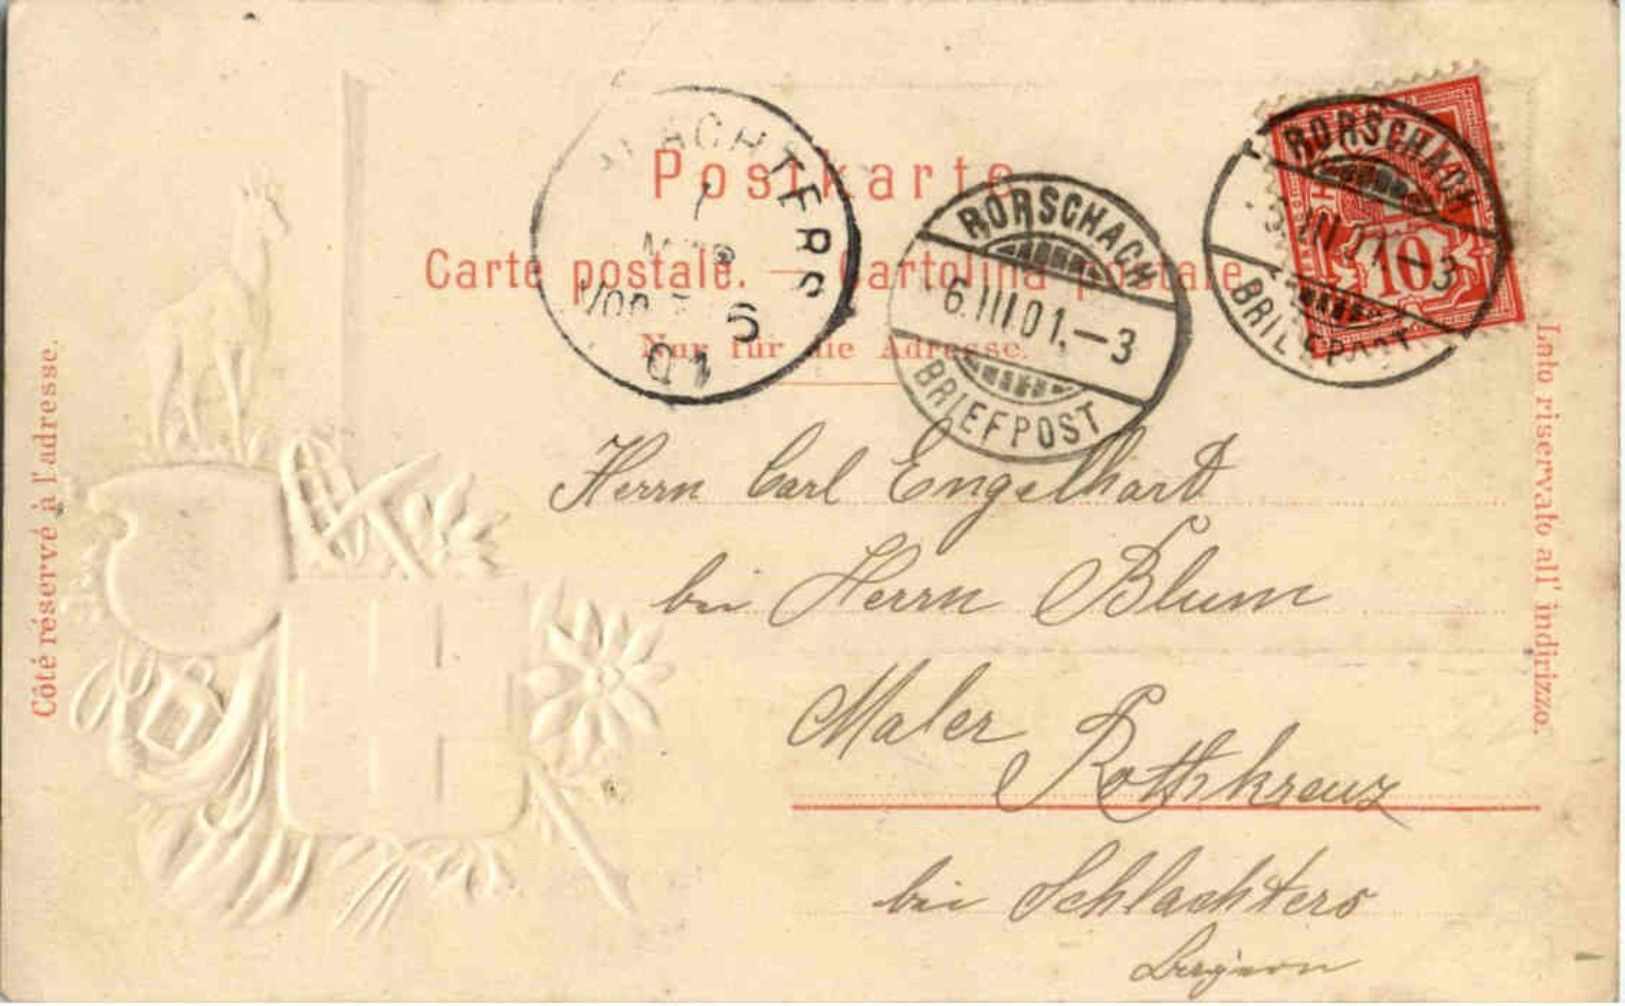 Postkarte
Carte postale. — Cartolina postale
Nur für die Adresse.
Côté réservé à l'adresse.
Lato riservato all' indirizzo.
SCHLACHTERS
7
RORSCHACH
6.III.01.–3
BRIEFPOST
RORSCHACH
III 01.–3
BRIEFPOST
10
Herrn Carl Engelhard
bei Herrn Blum
Maler Rothkreuz
bei Schlachters